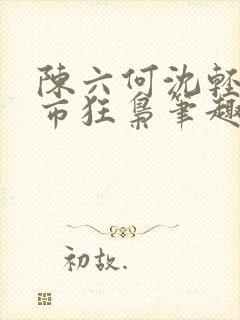 陳六何沈輕
市狂梟筆趣
初故.